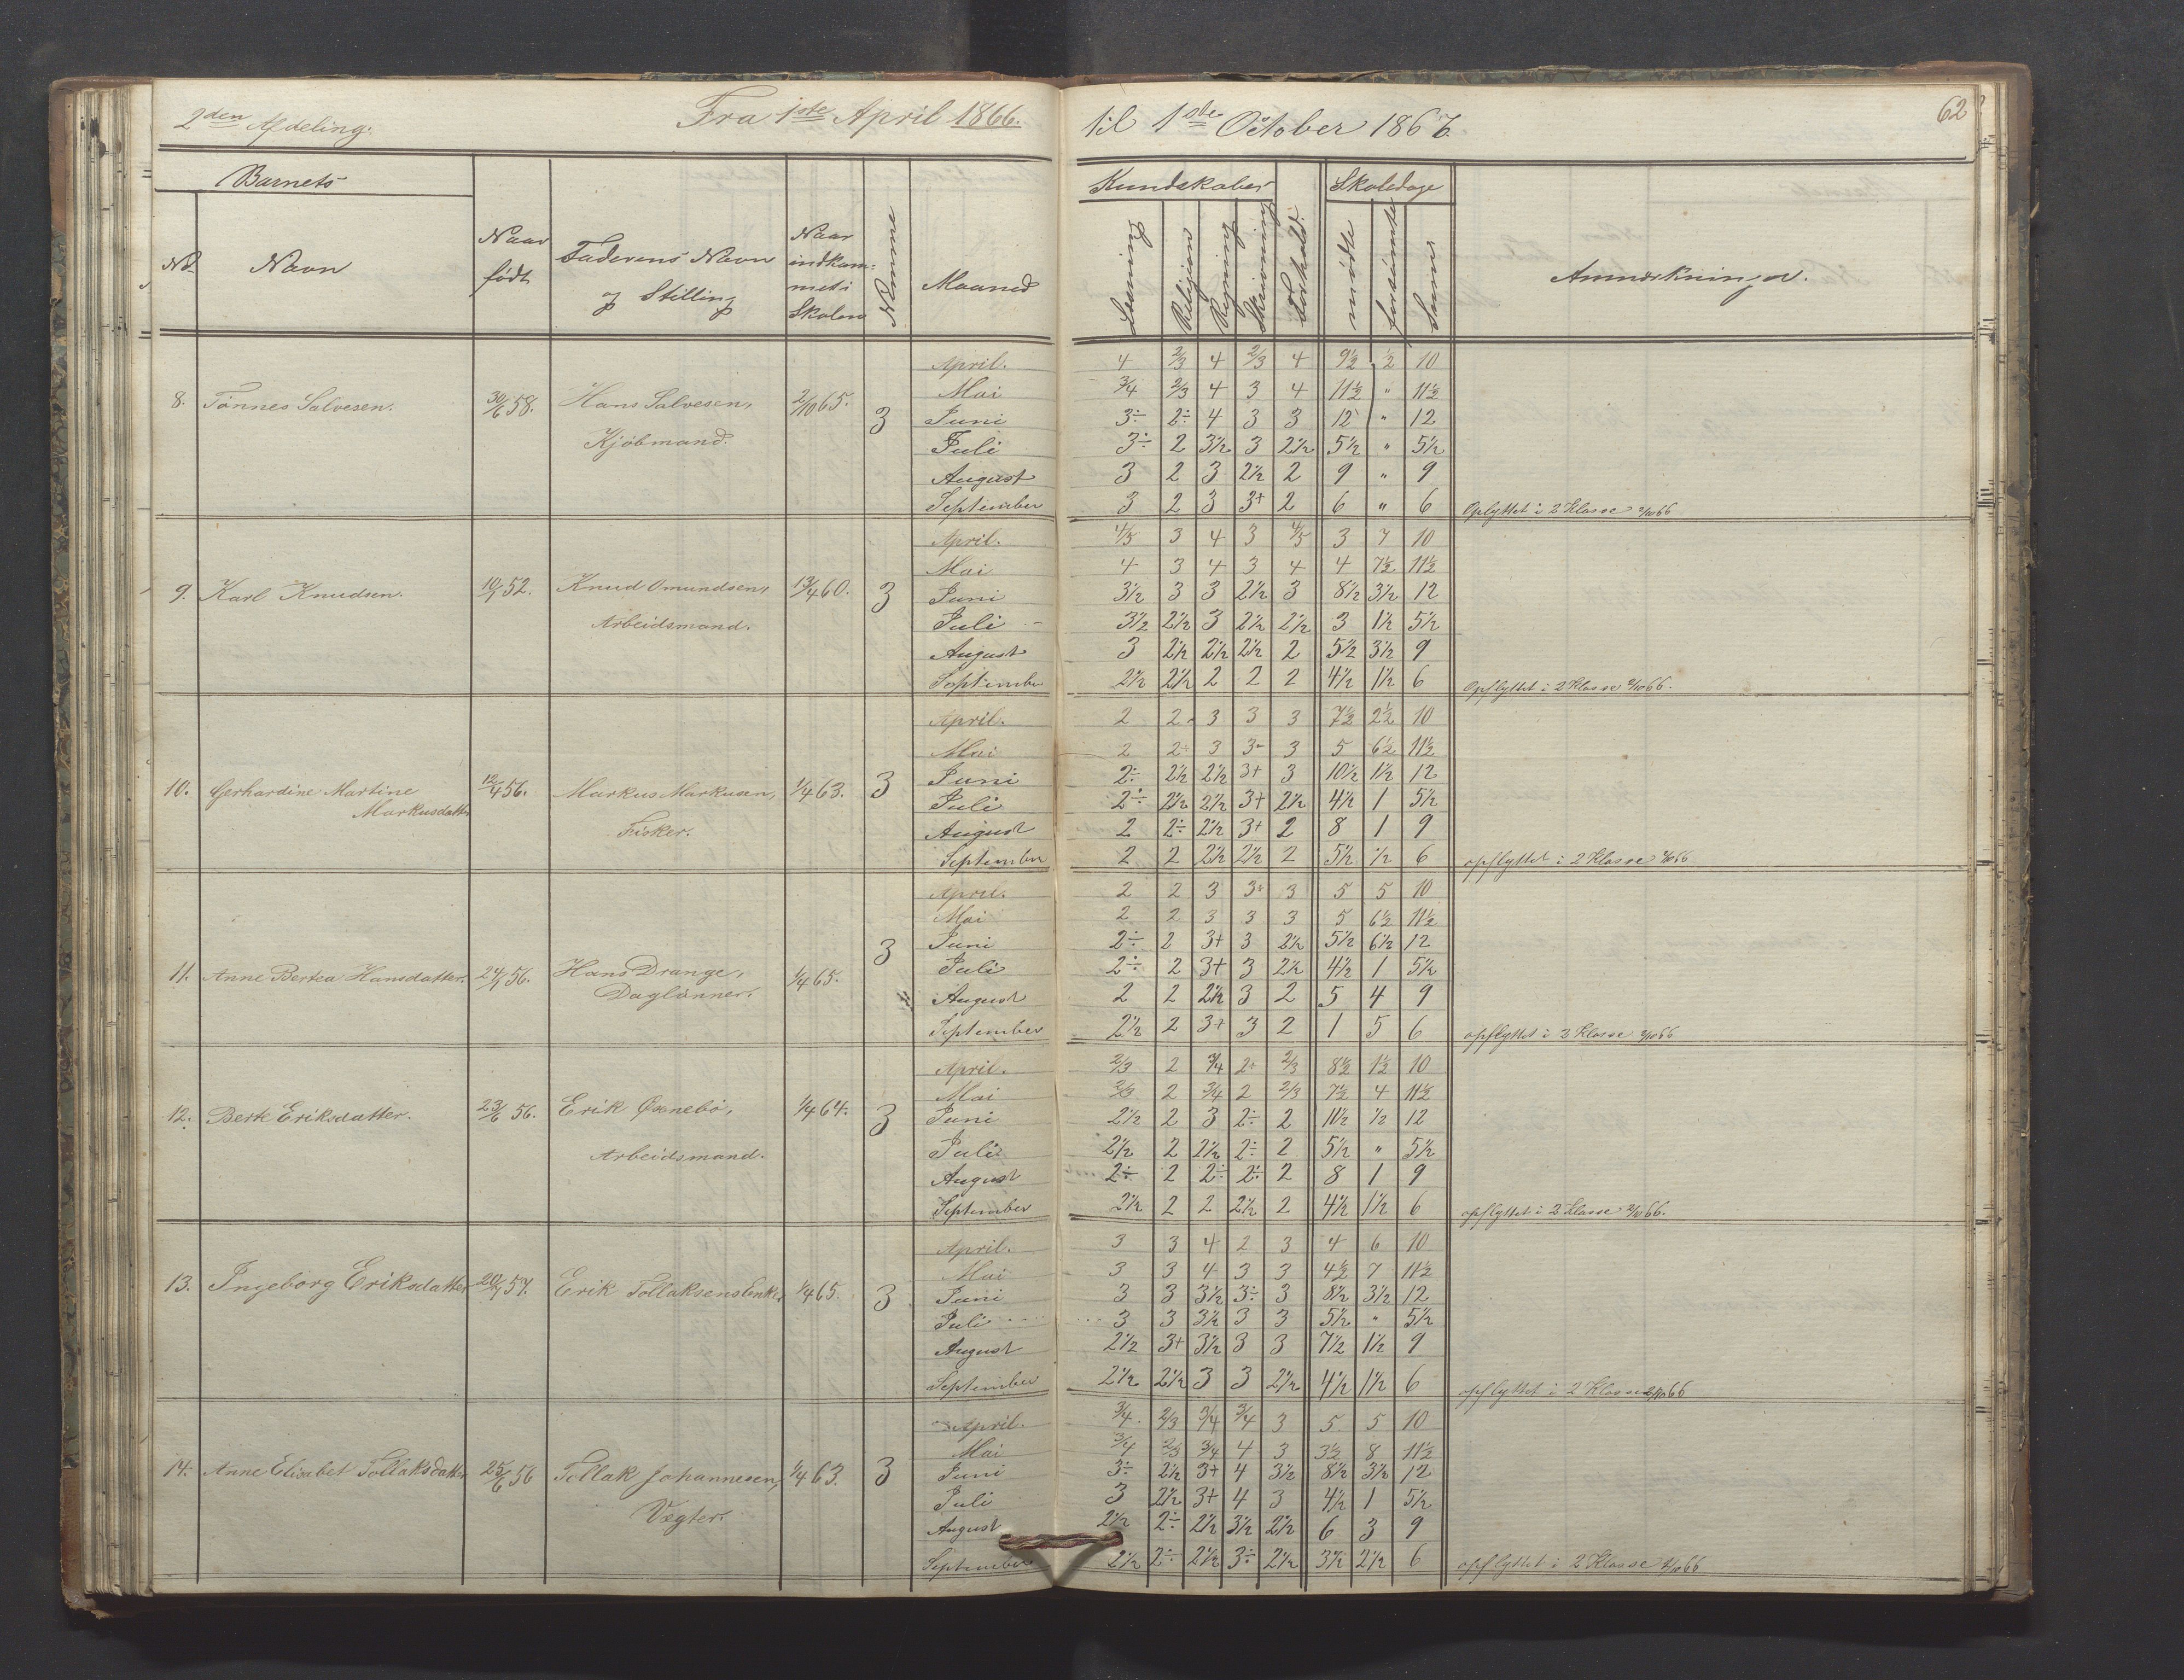 2den Afdeling. Fra 1ste April 1866. til 1ste October 1867. 62
Barnets Kundskaber Skoledage
No. Navn Naar født Faderens Navn og Stilling Naar indkommet i Skolen Nummer Maaned Læsning Religion Regning Skrivning Forhold. mødte forsømte Sum Anmærkninger.
April. 4 2/3 4 2/3 4 9½ ½ 10
Mai 3/4 2/3 4 3 4 11½ " 11½
8. Tønnes Salvesen. 30/6 58. Hans Salvesen, Kjøbmand. 2/10 65. 3 Juni 3÷ 2÷ 4 3 3 12 " 12
Juli 3÷ 2 3½ 3 2½ 5½ " 5½
August 3 2 3 2½ 2 9 " 9
September 3 2 3 3+ 2 6 " 6 Opflyttet i 2 Klasse 2/10 66
April. 4/5 3 4 3 4/5 3 7 10
Mai 4 3 4 3 4 4 7½ 11½
9. Karl Knudsen. 10/1 52. Knud Omundsen, Arbeidsmand. 13/4 60. 3 Juni 3½ 3 3 2½ 3 8½ 3½ 12
Juli 3½ 2½ 3 2½ 2½ 3 1½ 5½
August 3 2½ 2½ 2½ 2 5½ 3½ 9
September 2½ 2½ 2 2 2 4½ 1½ 6 Opflyttet i 2 Klasse 2/10 66.
April. 2 2 3 3 3 7½ 2½ 10
Mai 2 2÷ 3 3- 3 5 6½ 11½
10. Gerhardine Martine Markusdatter 12/4 56. Markus Markusen, Fisker. 1/4 63. 3 Juni 2÷ 2½ 2½ 3+ 3 10½ 1½ 12
Juli 2÷ 2½ 2½ 3+ 2½ 4½ 1 5½
August 2 2÷ 2½ 3+ 2 8 1 9
September 2 2 2½ 2½ 2 5½ ½ 6 opflyttet i 2 Klasse 2/10 66
April. 2 2 3 3÷ 3 5 5 10
Mai 2 2 3 3 3 5 6½ 11½
3 Juni 2÷ 2 3+ 3 2½ 5½ 6½ 12
11. Anne Bertea Hansdatter. 56. Hans Drange, Daglønner. 1/4 65. Juli 2÷ 2 3+ 3 2½ 4½ 1 5½
August 2 2 2½ 3 2 5 4 9
September 2½ 2 3+ 3 2 1 5 6 opflyttet i 2 Klasse 2/10 66
April. 2/3 2 3/4 2÷ 2/3 8½ 1½ 10
Mai 2/3 2 3/4 2 2/3 7½ 4 11½
12. Berte Eriksdatter. 23/6 56. Erik Øxnebø, Arbeidsmand. 1/4 64. 3 Juni 2½ 2 3 2÷ 2 11½ ½ 12
Juli 2½ 2 2½ 2÷ 2 5½ " 5½
August 2÷ 2 2÷ 2÷ 2 8 1 9
September 2½ 2 2 2½ 2 4½ 1½ 6 opflyttet i 2 Klasse 2/10 66.
April. 3 3 4 2 3 4 6 10
Mai 3 3 4 3 3 4½ 7 11½
13. Ingeborg Eriksdatter 57. Erik Tollaksens Enke, 1/4 65. 3 Juni 3 3 3½ 3÷ 3 8½ 3½ 12
Juli 3 3 3½ 3 3 5½ " 5½
August 2½ 3+ 3½ 3 3 7½ 1½ 9
September 2½ 2½ 3 3 2½ 4½ 1½ 6 opflyttet i 2 Klasse 2/10 66
April. 3/4 2/3 3/4 3/4 3 5 5 10
Mai 3/4 2/3 3/4 4 3 3½ 8 11½
14. Anne Elisabet Tollaksdatter 25/6 56 Tollak Johannesen, Vægter. 1/4 63. 3 Juni 3÷ 2½ 3+ 4 3½ 8½ 3½ 12
Juli 3 2½ 3+ 4 3 4½ 1 5½
August 2½ 2÷ 2½ 3½ 2½ 6 3 9
September 2½ 2÷ 2½ 3÷ 2½ 3½ 2½ 6 opflyttet i 2 Klasse 2/10 66